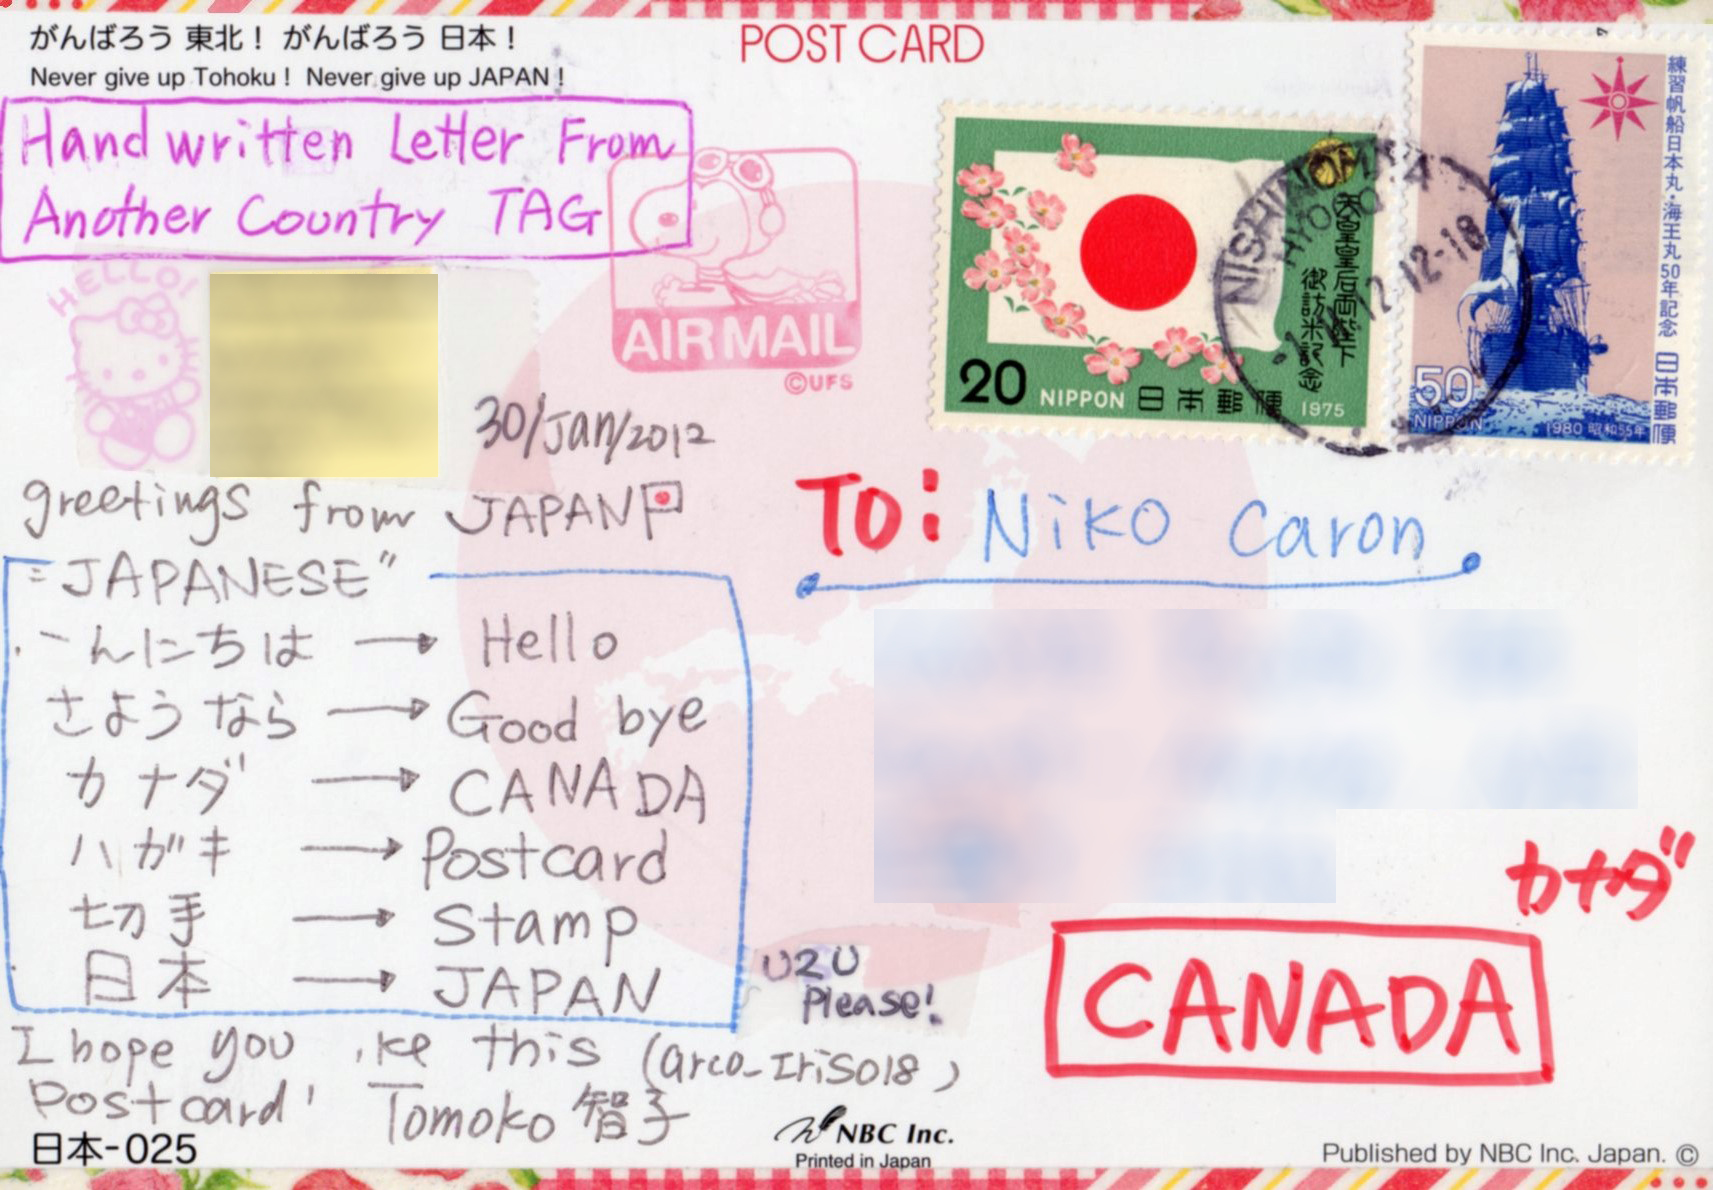 がんばろう 東北！ がんばろう 日本！
Never give up Tohoku！ Never give up JAPAN！
POST CARD
Hand written Letter From
Another Country TAG
HELLO!
AIR MAIL
©UFS
天皇皇后両陛下
御訪米記念
20 NIPPON 日本郵便 1975
練習帆船日本丸・海王丸50年記念 日本郵便
50
NIPPON
1980 昭和55年
NISHINOMIYA
HYOGO
12.12-18
30/Jan/2012
greetings from JAPAN
"JAPANESE"
んにちは → Hello
さようなら → Good bye
カナダ → CANADA
ハガキ → Postcard
切手 → Stamp
日本 → JAPAN
I hope you ike this (arco_Iris018)
Postcard! Tomoko 智子
U2U
Please!
TO: Niko Caron
カナダ
CANADA
日本-025
NBC Inc.
Printed in Japan
Published by NBC Inc. Japan. ©